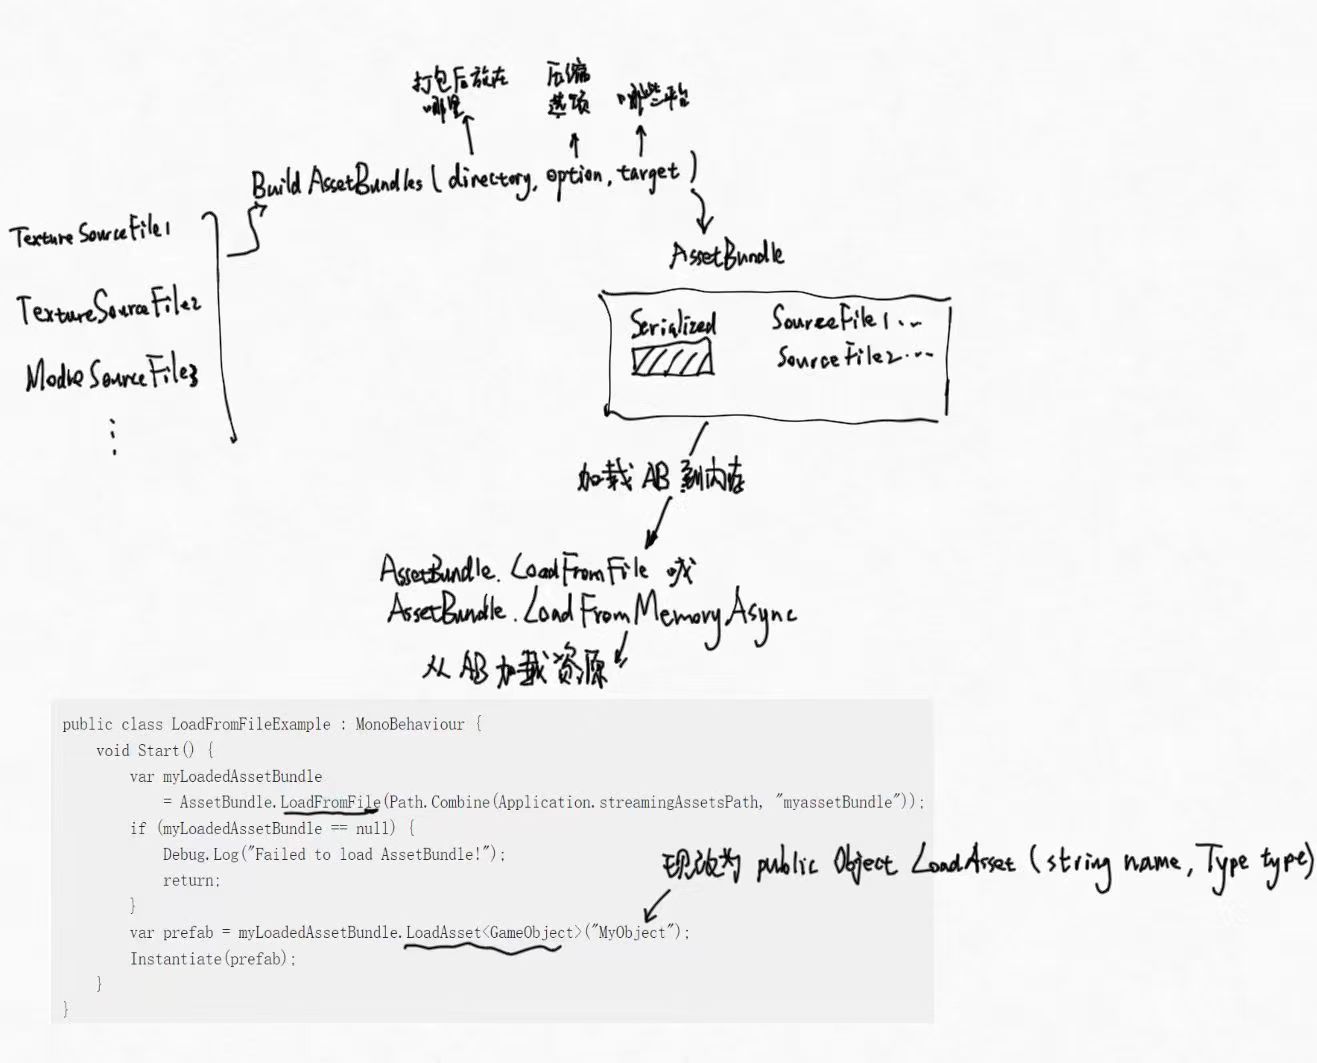 打包后放在
哪里
压缩
选项
哪些平台
Build AssetBundles (directory, option, target)
TextureSourceFile1
TextureSourceFile2
ModleSourceFile3
⋮
AssetBundle
Serialized
SourceFile1...
SourceFile2...
加载 AB 到内存
AssetBundle.LoadFromFile 或
AssetBundle.LoadFromMemoryAsync
从 AB 加载资源
public class LoadFromFileExample : MonoBehaviour {
void Start() {
var myLoadedAssetBundle
= AssetBundle.LoadFromFile(Path.Combine(Application.streamingAssetsPath, "myassetBundle"));
if (myLoadedAssetBundle == null) {
Debug.Log("Failed to load AssetBundle!");
return;
}
现改为 public Object LoadAsset (string name, Type type)
var prefab = myLoadedAssetBundle.LoadAsset<GameObject>("MyObject");
Instantiate(prefab);
}
}